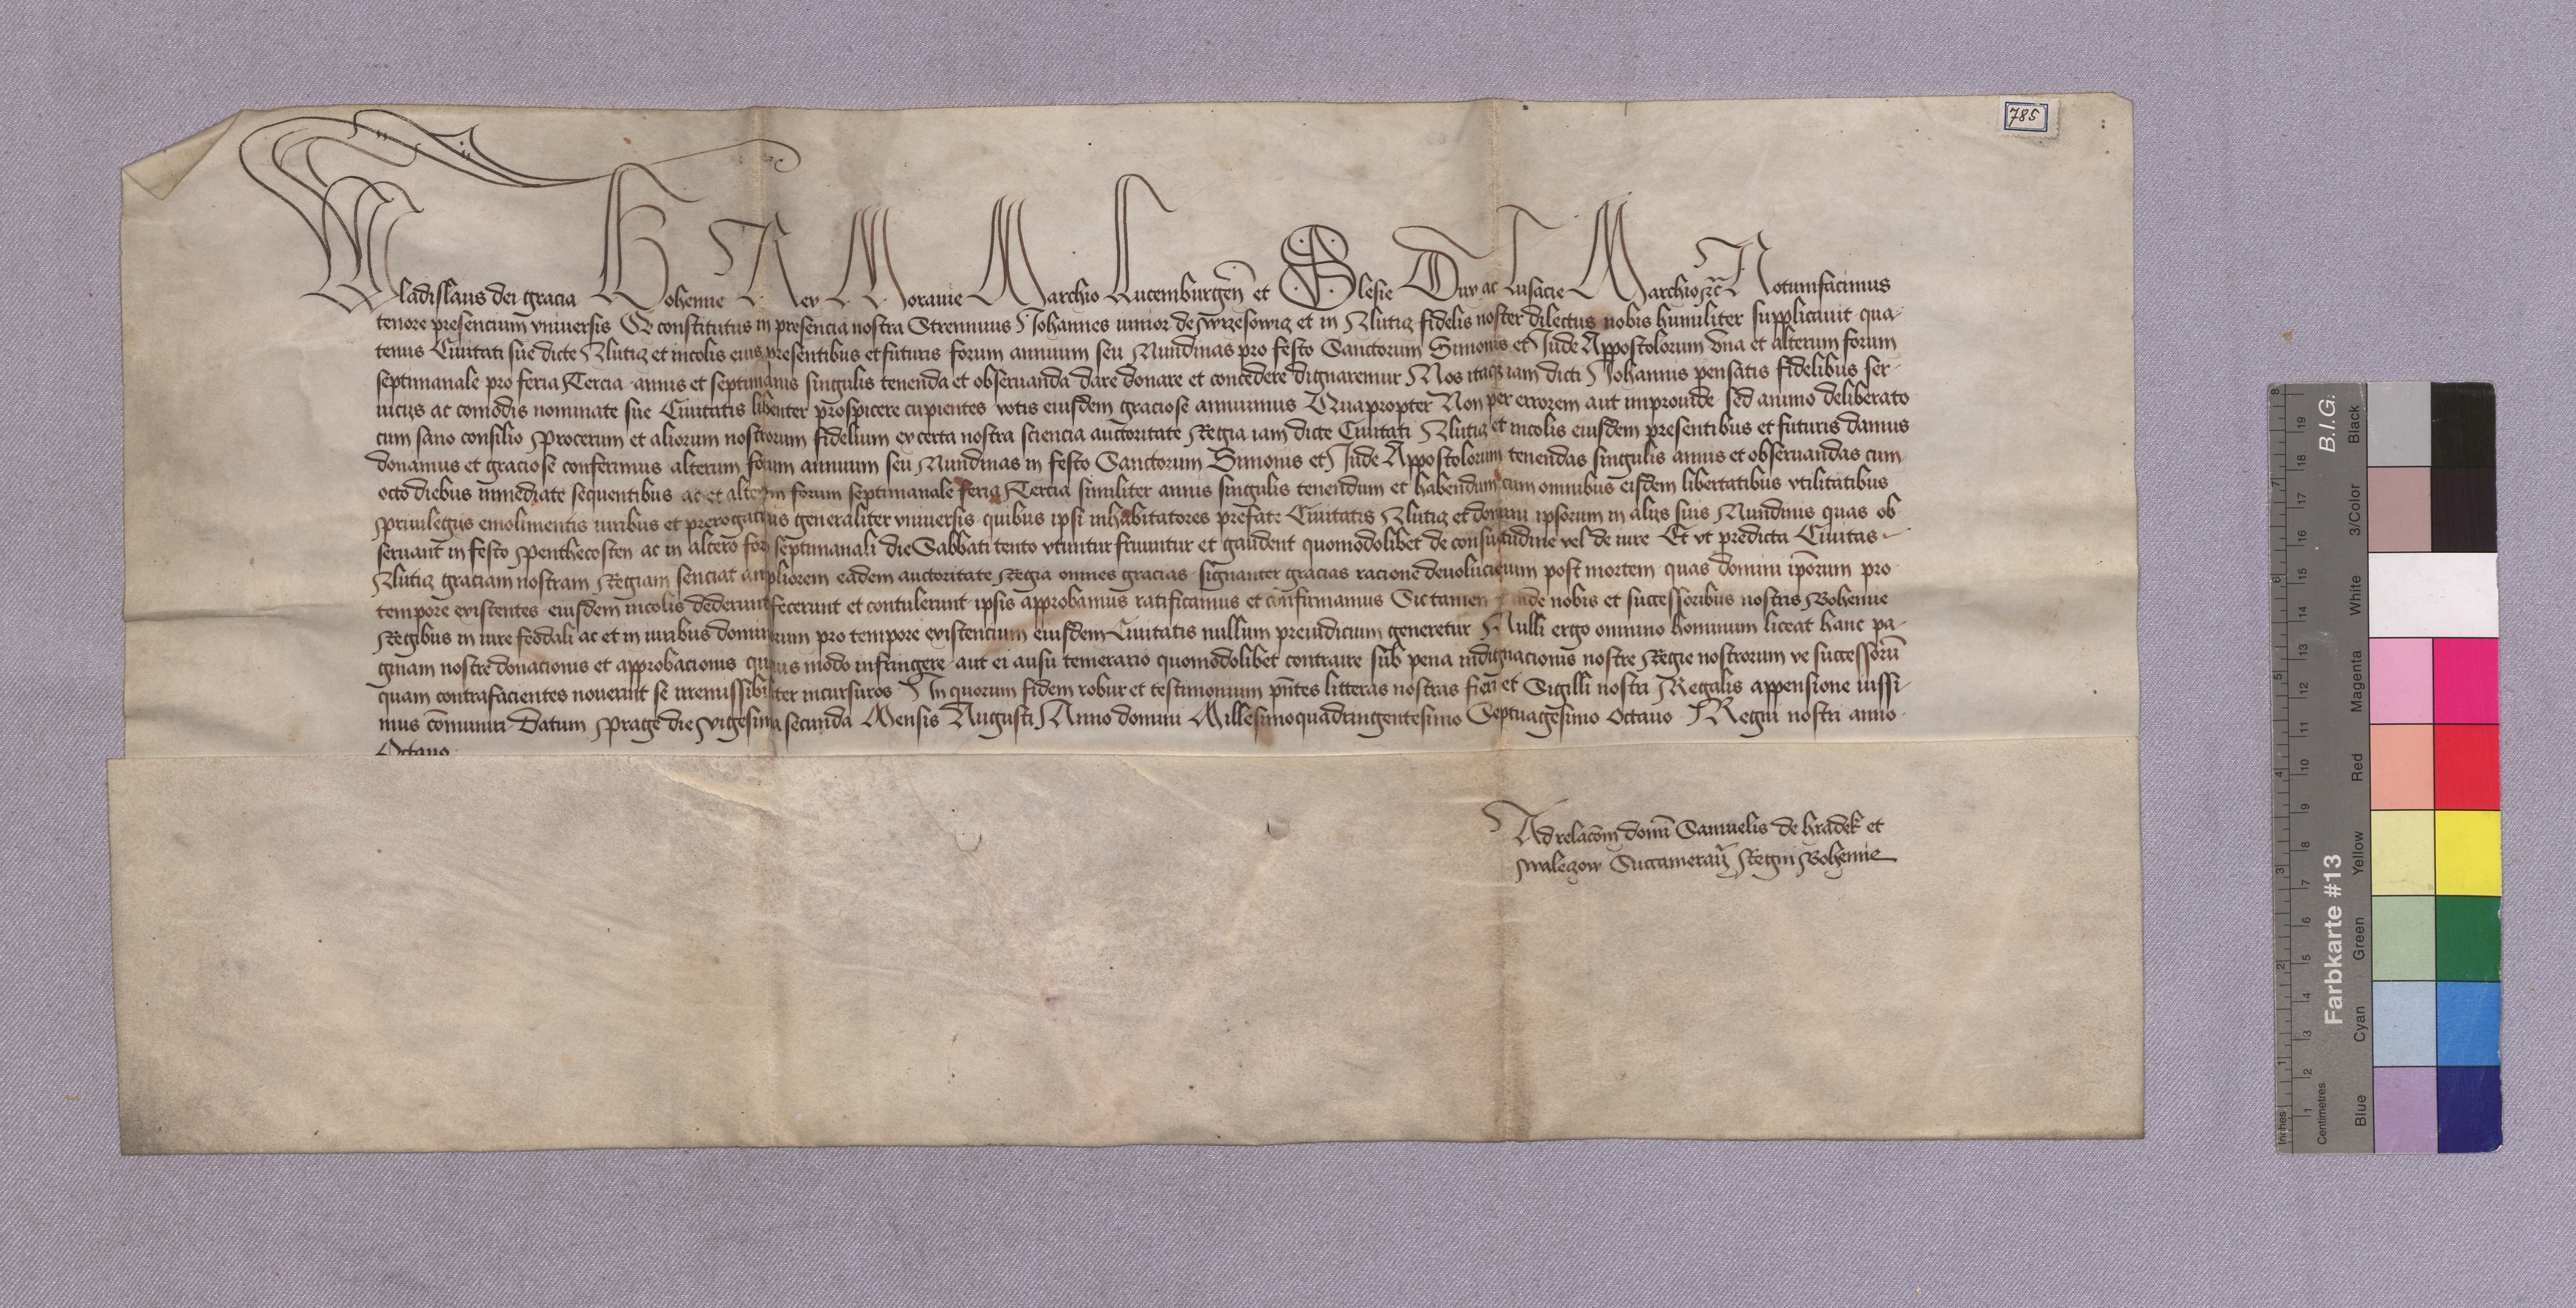 785
Wladislaus dei gracia Bohemie Rex Moravie Marchio Lucemburgeñ et Slesie Dux ac Lusacie Marchio zc̄ Notumfacimus
tenore presencium vniuersis Q constitutus in presencia nostra Strennuus Johannes iunior de Wrzesowiz et in Zlutiz fidelis noster dilectus nobis humiliter supplicauit qua-
tenus Ciuitati sue dicte Zlutiz et incolis eius presentibus et futuris forum annuum seu Nundinas pro festo Sanctorum Simonis et Jude Appostolorum vna et alterum forum
septimanale pro feria Tercia annis et septimanis singulis tenenda et obseruanda dare donare et concedere dignaremur Nos itaq iam dicti Johannis pensatis fidelibus ser-
uicijs ac comodis nominate sue Ciuitatis libenter prospicere cupientes votis eiusdem graciose annuimus Quapropter Non per errorem aut improuide sed animo deliberato
cum sano consilio procerum et aliorum nostrorum fidelium ex certa nostra sciencia auctoritate Regia iam dicte Ciuitati Zlutiz et incolis eiusdem presentibus et futuris damus
donamus et graciose conferimus alterum forum annuum seu Nundinas in festo Sanctorum Simonis et Jude Appostolorum tenendas singulis annis et obseruandas cum
octo diebus inmediate sequentibus ac et alterum forum septimanale feria Tercia similiter annis singulis tenendum et habendum cum omnibus eisdem libertatibus vtilitatibus
priuilegijs emolimentis iuribus et prerogatiuis generaliter vniuersis quibus ipsi inhabitatores prefate Ciuitatis Zlutiz et domini ipsorum in alijs suis Nundinis quas ob-
seruant in festo Penthecosten ac in altero foro septimanali die Sabbati tento vtuntur fruuntur et gaudent quomodolibet de consuetudine vel de iure Et vt predicta Ciuitas
Zlutiz graciam nostram Regiam senciat ampliorem eadem auctoritate Regia omnes gracias signanter gracias racione deuolucionum post mortem quas domini ip̄orum pro
tempore existentes eiusdem incolis dederunt fecerunt et contulerunt ipsis approbamus ratificamus et confirmamus Sic tamen nobis et successoribus nostris Bohemie
Regibus in iure feodali ac et in iuribus dominorum pro tempore existencium eiusdem Ciuitatis nullum preiudicium generetur Nulli ergo omnino hominum liceat hanc pa-
ginam nostre donacionis et approbacionis quouis modo infringere aut ei ausu temerario quomodolibet contraire sub pena indignacionis nostre Regie nostrorum ve successorū
quam contrafacientes nouerint se irremissibiliter incursuros In quorum fidem robur et testimonium pñtes litteras nostras fieri et Sigilli nostri Regalis appensione iussi-
mus cōmuniri Datum Prage die vigesima secunda Mensis Augusti Anno domini Millesimoquadringentesimo Septuagesimo Octauo Regni nostri anno
Octauo
Ad relacōm domī Samuelis de hradek et
walezow Succamerarij Regni Bohemie
Inches
Centimetres
Farbkarte #13
B.I.G.
Blue
Cyan
Green
Yellow
Red
Magenta
White
3/Color
Black